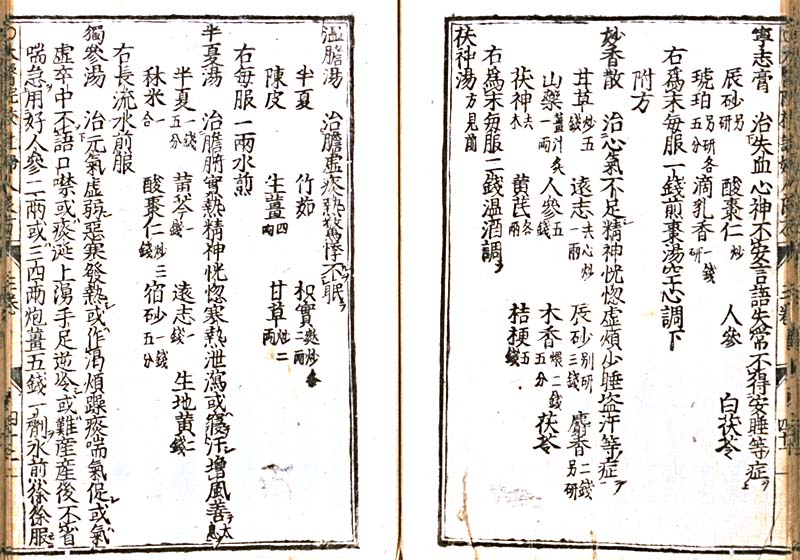 寧志膏 治失血心神不安言語失常不得安睡等症
辰砂另研 酸棗仁炒 人參 白茯苓
琥珀另研各 滴乳香一錢研
右爲末每服一錢煎棗湯空心調下
附方
妙香散 治心氣不足精神恍惚虛煩少睡盜汗等症
甘草炒五錢 遠志去心炒一兩 辰砂别研三錢 麝香二錢另研
山藥薑汁炙一兩 人參五錢 木香煨二錢五分 茯苓
茯神去木 黃芪各一兩 桔梗五錢
右爲末每服二錢溫酒調
茯神湯 方見前
溫膽湯 治膽虛痰熱驚悸不眠
半夏 竹茹 枳實麩炒各二兩
陳皮 生薑四兩 甘草炒二兩
右每服一兩水煎
半夏湯 治膽腑實熱精神恍惚寒熱泄瀉或寢汗增風善太息
半夏一錢五分 黃芩一錢 遠志一錢 生地黃一錢
秫米一合 酸棗仁炒三錢 宿砂一錢五分
右長流水煎服
獨參湯 治元氣虛弱惡寒發熱或作渴煩躁痰喘氣促或氣
虛卒中不語口噤或痰涎上湧手足逆冷或難産産後不省
喘急用好人參二兩或三四兩炮薑五錢一劑水煎徐徐服